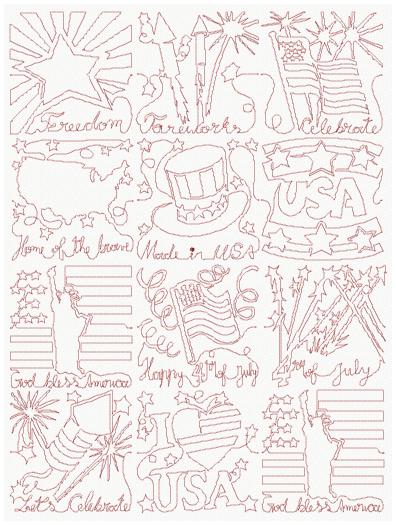 Freedom
Fireworks
Celebrate
Home of the brave
Made in USA
USA
God bless America
Happy 4th of July
4th of July
Let's Celebrate
I
USA
God bless America